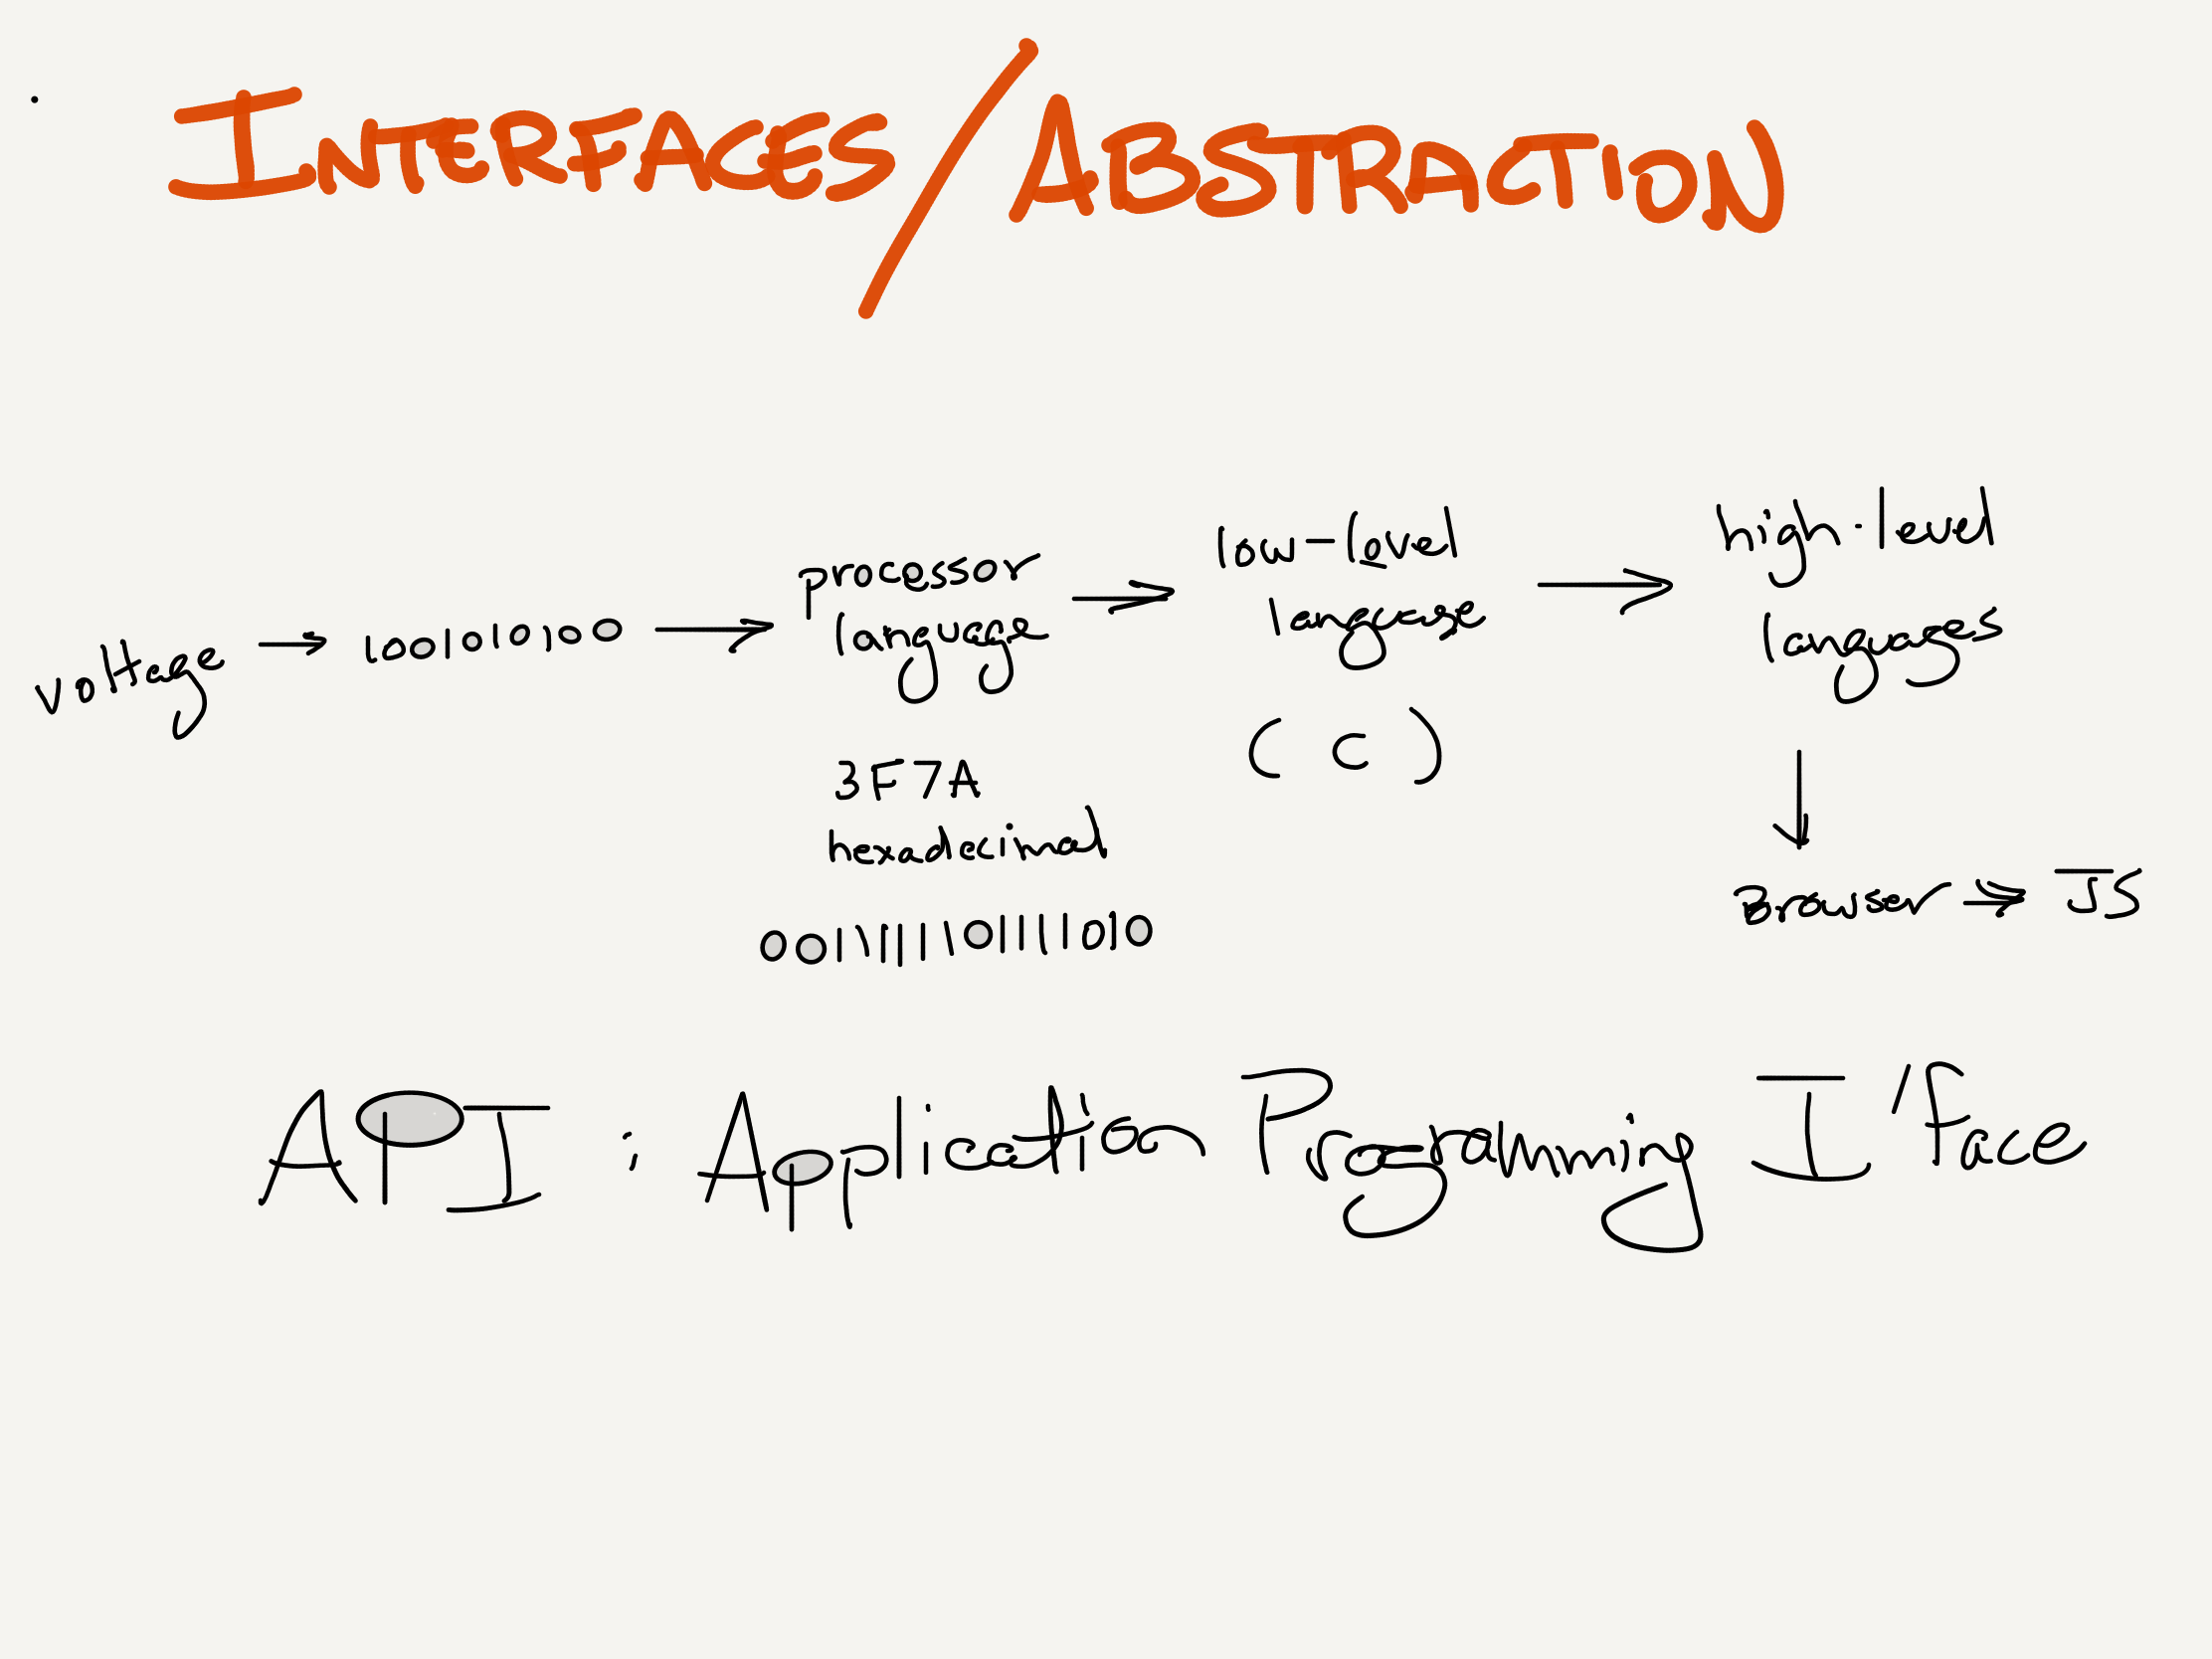 INTERFACES/ABSTRACTION
voltage → 1001010100 → processor language → low-level language → high-level languages
3F7A
hexadecimal
0011111101111010
(C)
↓
Browser → JS
API : Application Programming I'face